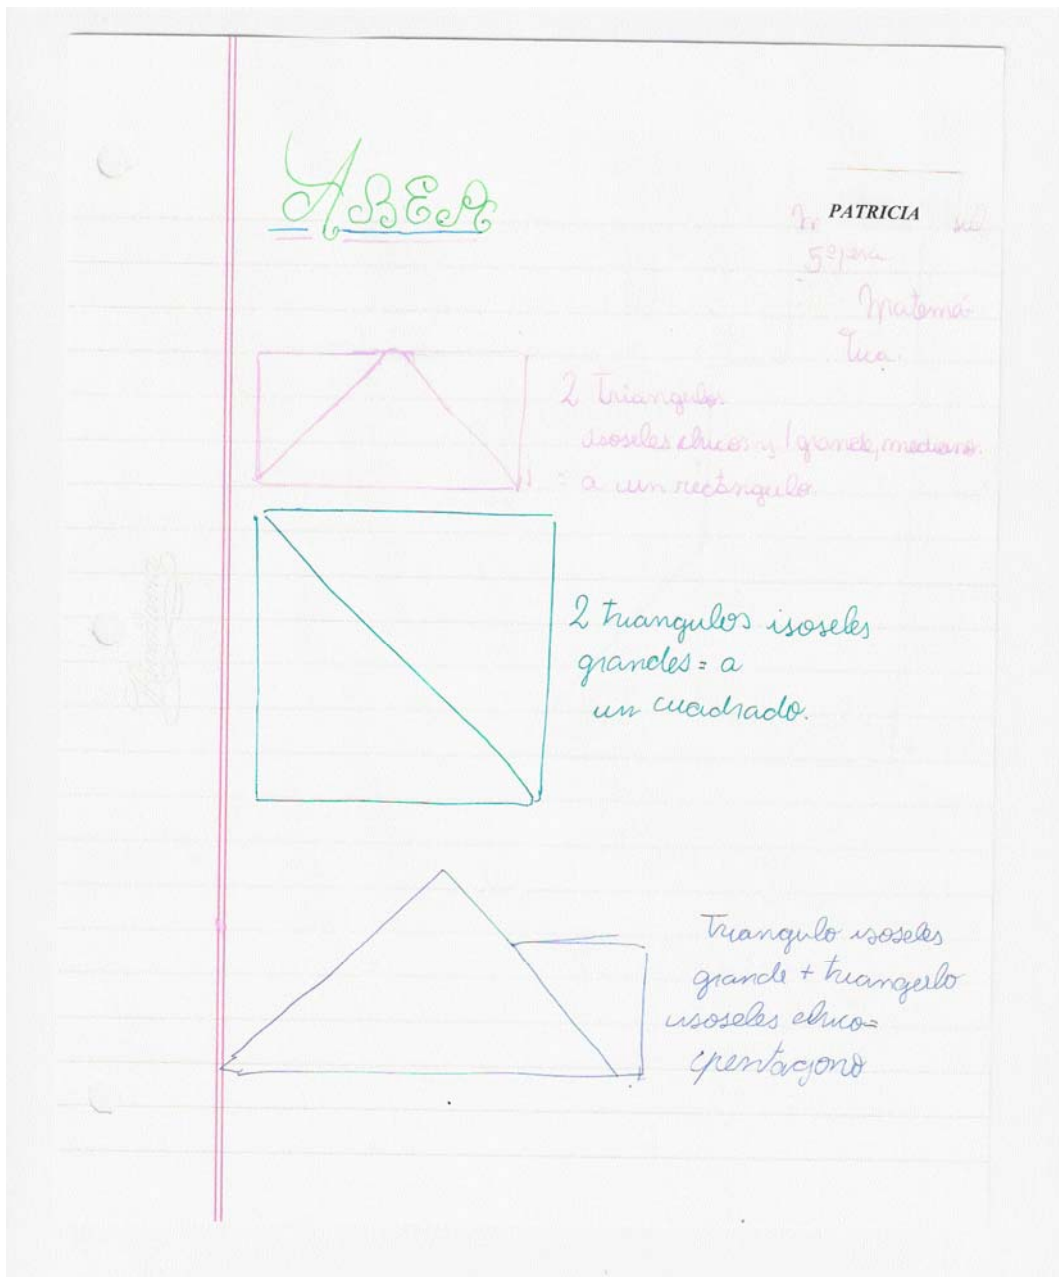 ABEA
PATRICIA
5º
Matemá-
tica.
2 Triangulos
isoseles chicos y 1 grande, mediano.
= a un rectángulo.
2 triangulos isoseles
grandes = a
un cuadrado.
Triangulo isoseles
grande + triangulo
isoseles chico =
pentagono